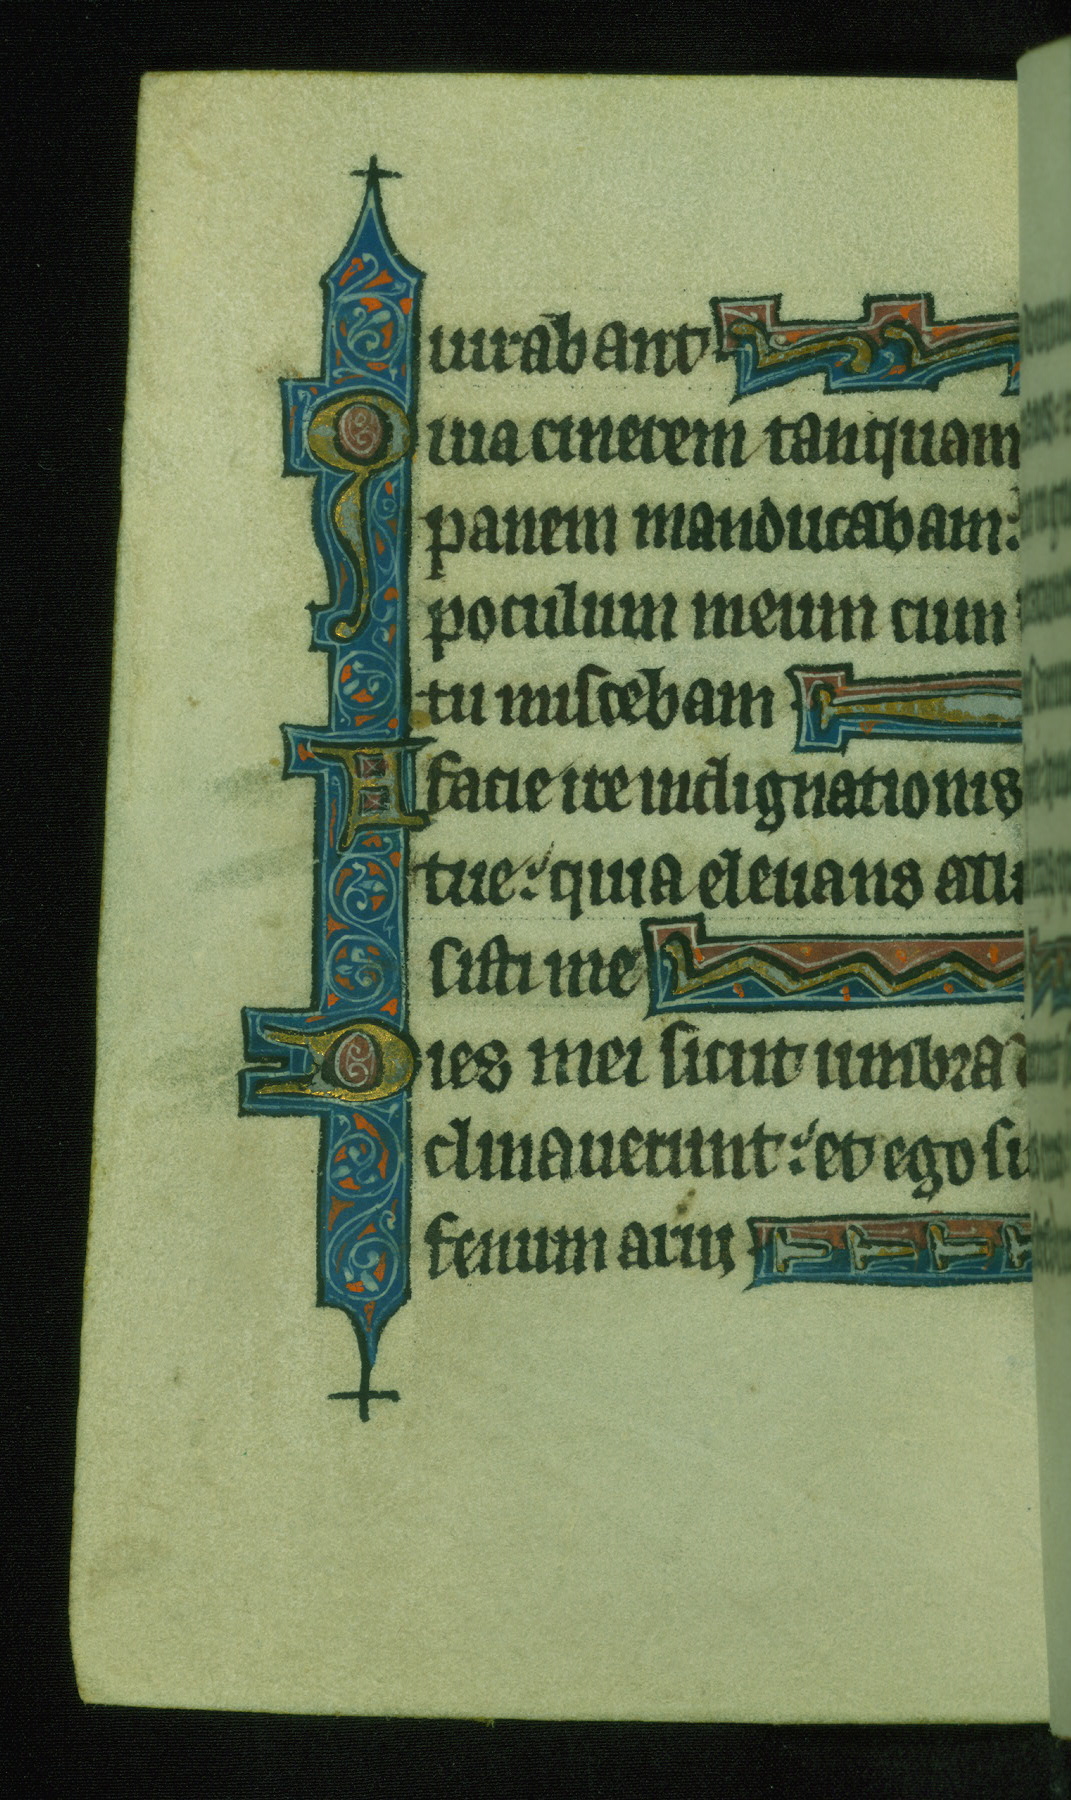 iurabant
Quia cinerem tanquam
panem manducabam:
poculum meum cum
tu miscebam
A facie ire indignationis
tue: quia eleuans alli
sisti me
Dies mei sicut umbra
clinauerunt: et ego
fenum arui